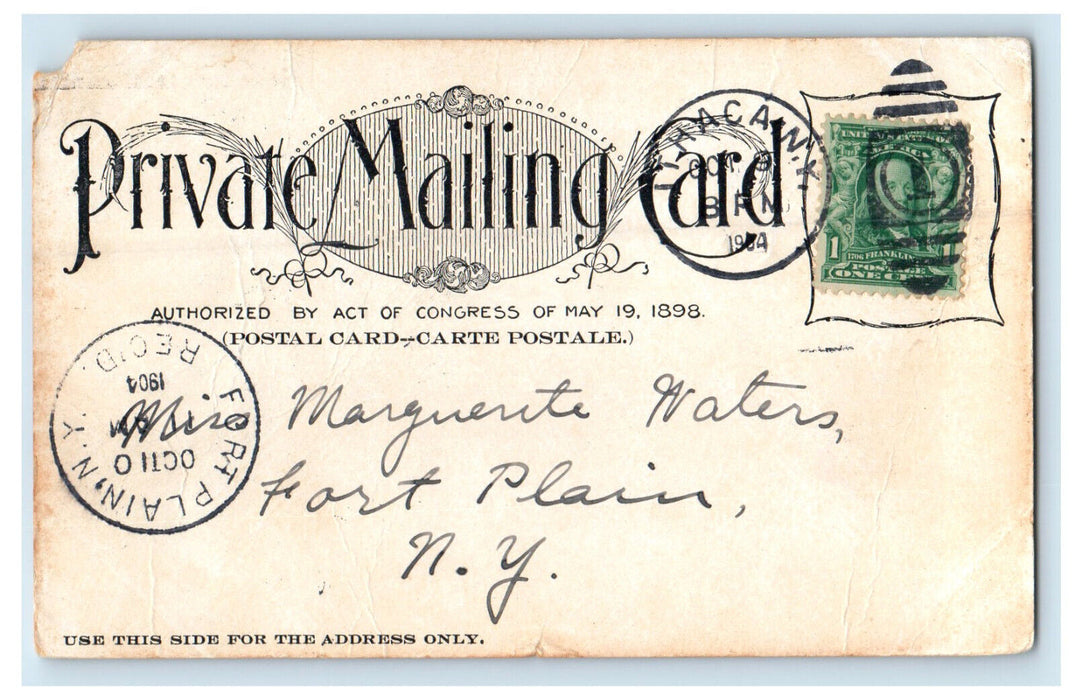 Private Mailing Card
AUTHORIZED BY ACT OF CONGRESS OF MAY 19, 1898.
(POSTAL CARD—CARTE POSTALE.)
ITHACA, N.Y.
OCT 9
8 PM
1904
1
1706 FRANKLIN
POSTAGE
ONE CENT
FORT PLAIN, N.Y.
OCT 10
1904
REC'D.
Miss Marguerite Waters,
Fort Plain,
N.Y.
USE THIS SIDE FOR THE ADDRESS ONLY.